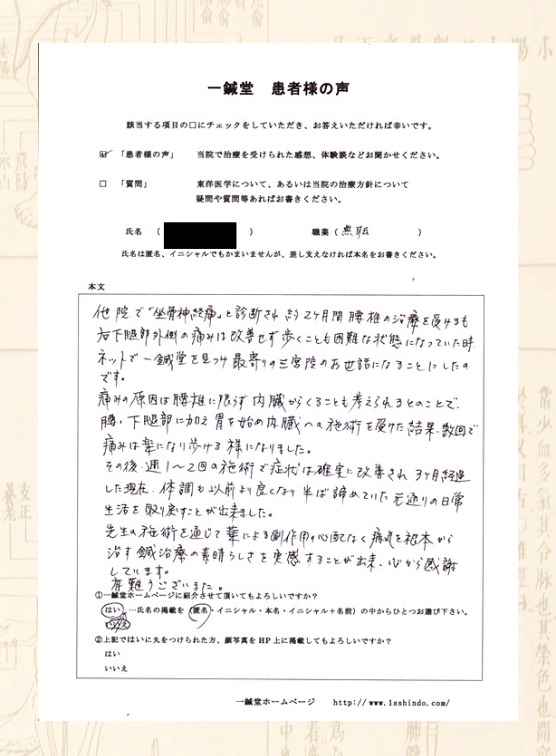 一鍼堂 患者様の声
該当する項目の□にチェックをしていただき、お答えいただければ幸いです。
☑ 「患者様の声」 当院で治療を受けられた感想、体験談などお聞かせください。
□ 「質問」 東洋医学について、あるいは当院の治療方針について
疑問や質問等あればお書きください。
氏名 ( ) 職業 ( 無職 )
氏名は匿名、イニシャルでもかまいませんが、差し支えなければ本名をお書きください。
本文
他院で「坐骨神経痛」と診断され約2ヶ月間腰椎の治療を受けるも
右下腿部外側の痛みは改善せず歩くことも困難な状態になっていた時
ネットで一鍼堂を見つけ最寄りの三宮院のお世話になることにしたの
です。
痛みの原因は腰椎に限らず内臓からくることも考えられるとのことで、
腰、下腿部に加え胃を始め内臓への施術を受けた結果、数回で
痛みは楽になり歩ける様になりました。
その後、週1〜2回の施術で症状は確実に改善され3ヶ月経過
した現在、体調も以前より良くなり半ば諦めていた元通りの日常
生活を取り戻すことが出来ました。
先生の施術を通じて薬による副作用の心配なく病を根本から
治す鍼治療の素晴らしさを実感することが出来、心から感謝
しています。
有難うございました。
①一鍼堂ホームページに紹介させて頂いてもよろしいですか？
はい …氏名の掲載を（匿名・イニシャル・本名・イニシャル＋名前）の中からひとつお選び下さい。
②上記ではいに丸をつけられた方、顔写真をHP上に掲載してもよろしいですか？
はい
いいえ
一鍼堂ホームページ http://www.1sshindo.com/